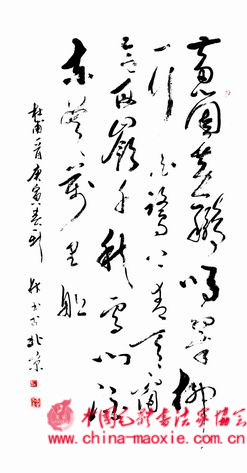 两个黄鹂鸣翠柳
一行白鹭上青天窗
含西岭千秋雪门泊
东吴万里船
杜甫一首庚寅春
书于北京
中国毛体书法家协会
www.china-maoxie.com.cn